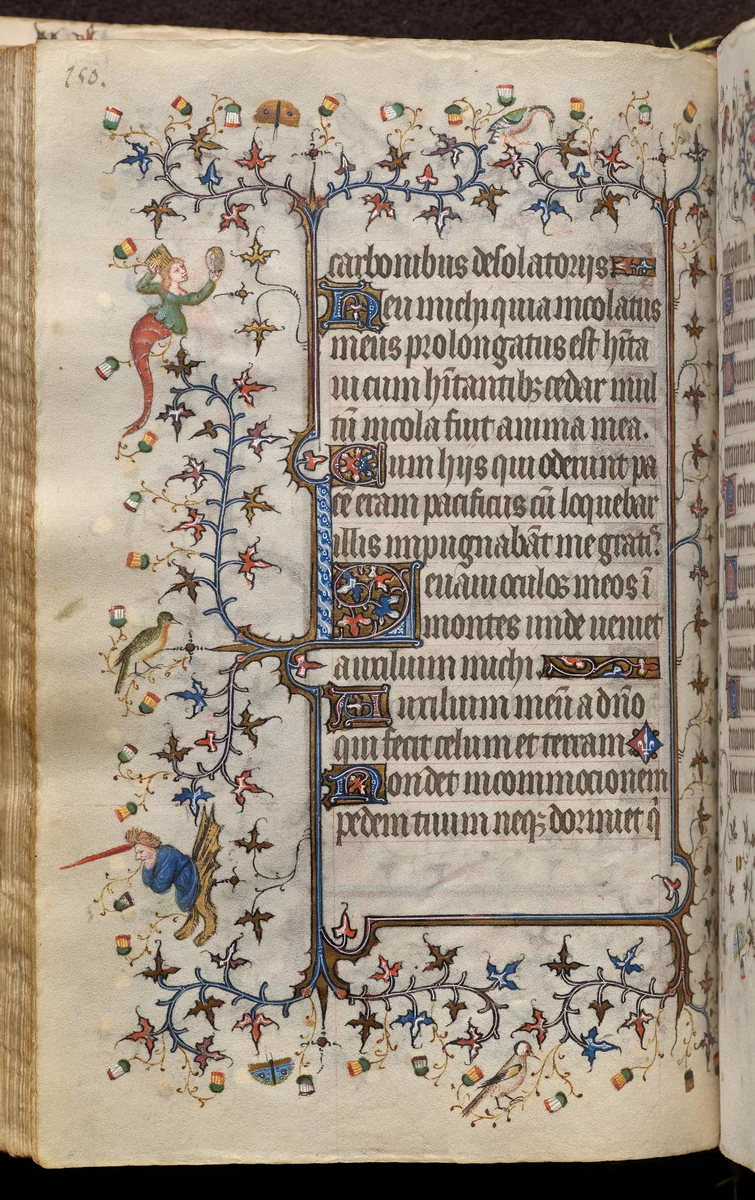 180.
carbonibus desolatorijs
Heu michi quia incolatus
meus prolongatus est hĩta
ui cum hĩtantibꝫ cedar mul
tũ incola fuit anima mea.
Cum hijs qui oderunt pa
ce eram pacificus cũ loquebar
illis impugnabãt me gratis.
Leuaui oculos meos ĩ
montes unde ueniet
auxilium michi
Auxilium meũ a dño
qui fecit celum et terram
Non det in commocionem
pedem tuum neqꝫ dormiet q̃